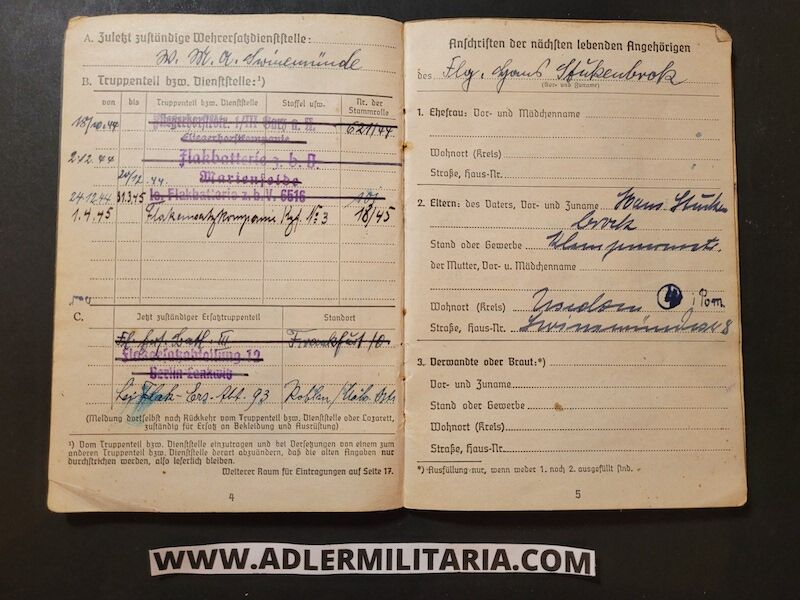 A. Zuletzt zuständige Wehrersatzdienststelle:
W. M. A. Swinemünde
B. Truppenteil bzw. Dienststelle:¹)
von bis Truppenteil bzw. Dienststelle Staffel usw. Nr. der Stammrolle
18/10.44 1/III 621/44
Fliegerhorstkompanie
2.12.44 Flakbatterie z.b.V.
20/12.44 Marienfelde
24.12.44 31.3.45 le. Flakbatterie z.b.V. 6516
1.4.45 Flakersatzkompanie No 3 18/45
C. Jetzt zuständiger Ersatztruppenteil Standort
III Frankfurt/O
12
Berlin-Lankwitz
Flak-Ers. Abt. 93
(Meldung dortselbst nach Rückkehr vom Truppenteil bzw. Dienststelle oder Lazarett,
zuständig für Ersatz an Bekleidung und Ausrüstung)
¹) Vom Truppenteil bzw. Dienststelle einzutragen und bei Versetzungen von einem zum
anderen Truppenteil bzw. Dienststelle derart abzuändern, daß die alten Angaben nur
durchstrichen werden, also leserlich bleiben.
Weiterer Raum für Eintragungen auf Seite 17.
4
Anschriften der nächsten lebenden Angehörigen
des Flg. Hans Stükenbrok
(Vor- und Zuname)
1. Ehefrau: Vor- und Mädchenname
Wohnort (Kreis)
Straße, Haus-Nr.
2. Eltern: des Vaters, Vor- und Zuname Hans Stüken
brock
Stand oder Gewerbe Klempnermstr.
der Mutter, Vor- u. Mädchenname
Wohnort (Kreis) Usedom 4 i/Pom.
Straße, Haus-Nr. Swinemünder 8
3. Verwandte oder Braut:*)
Vor- und Zuname
Stand oder Gewerbe
Wohnort (Kreis)
Straße, Haus-Nr.
*) Ausfüllung nur, wenn weder 1. noch 2. ausgefüllt sind.
5
WWW.ADLERMILITARIA.COM